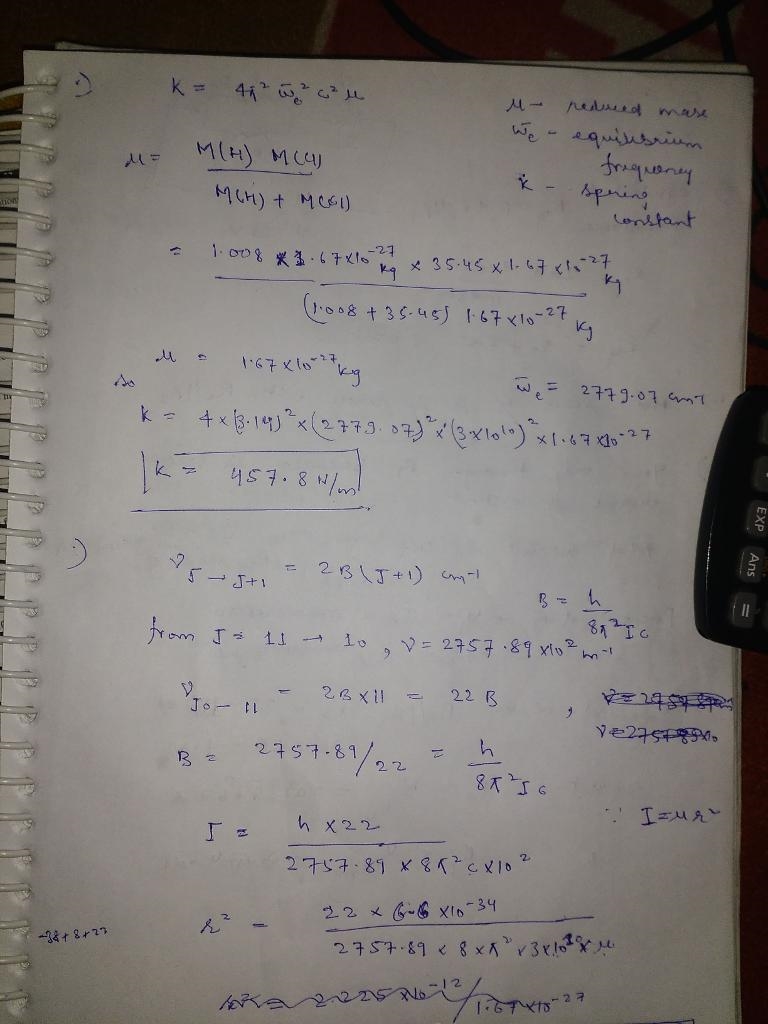 ·) K = 4π² ω̄e² c² μ
μ → reduced mass
ω̄e - equilibrium frequency
K - spring constant
μ = M(H) M(Cl) / M(H) + M(Cl)
= 1.008 × 1.67×10⁻²⁷ kg × 35.45 × 1.67 × 10⁻²⁷ kg / (1.008 + 35.45) 1.67 × 10⁻²⁷ kg
μ = 1.67 × 10⁻²⁷ kg
so ω̄e = 2779.07 cm⁻¹
K = 4 × (3.14)² × (2779.07)² × (3×10¹⁰)² × 1.67 × 10⁻²⁷
K = 457.8 N/m
·) ν J → J+1 = 2B(J+1) cm⁻¹
B = h / 8π² I c
from J = 11 → 10, ν = 2757.89 × 10² m⁻¹
ν 10 – 11 = 2B × 11 = 22 B,
B = 2757.89/22 = h / 8π² I c
I = h × 22 / 2757.89 × 8π² c × 10²
∵ I = μr²
r² = 22 × 6.6 × 10⁻³⁴ / 2757.89 × 8 × π² × 3×10¹⁰ × μ
-34 + 8 + 27
EXP
Ans
=